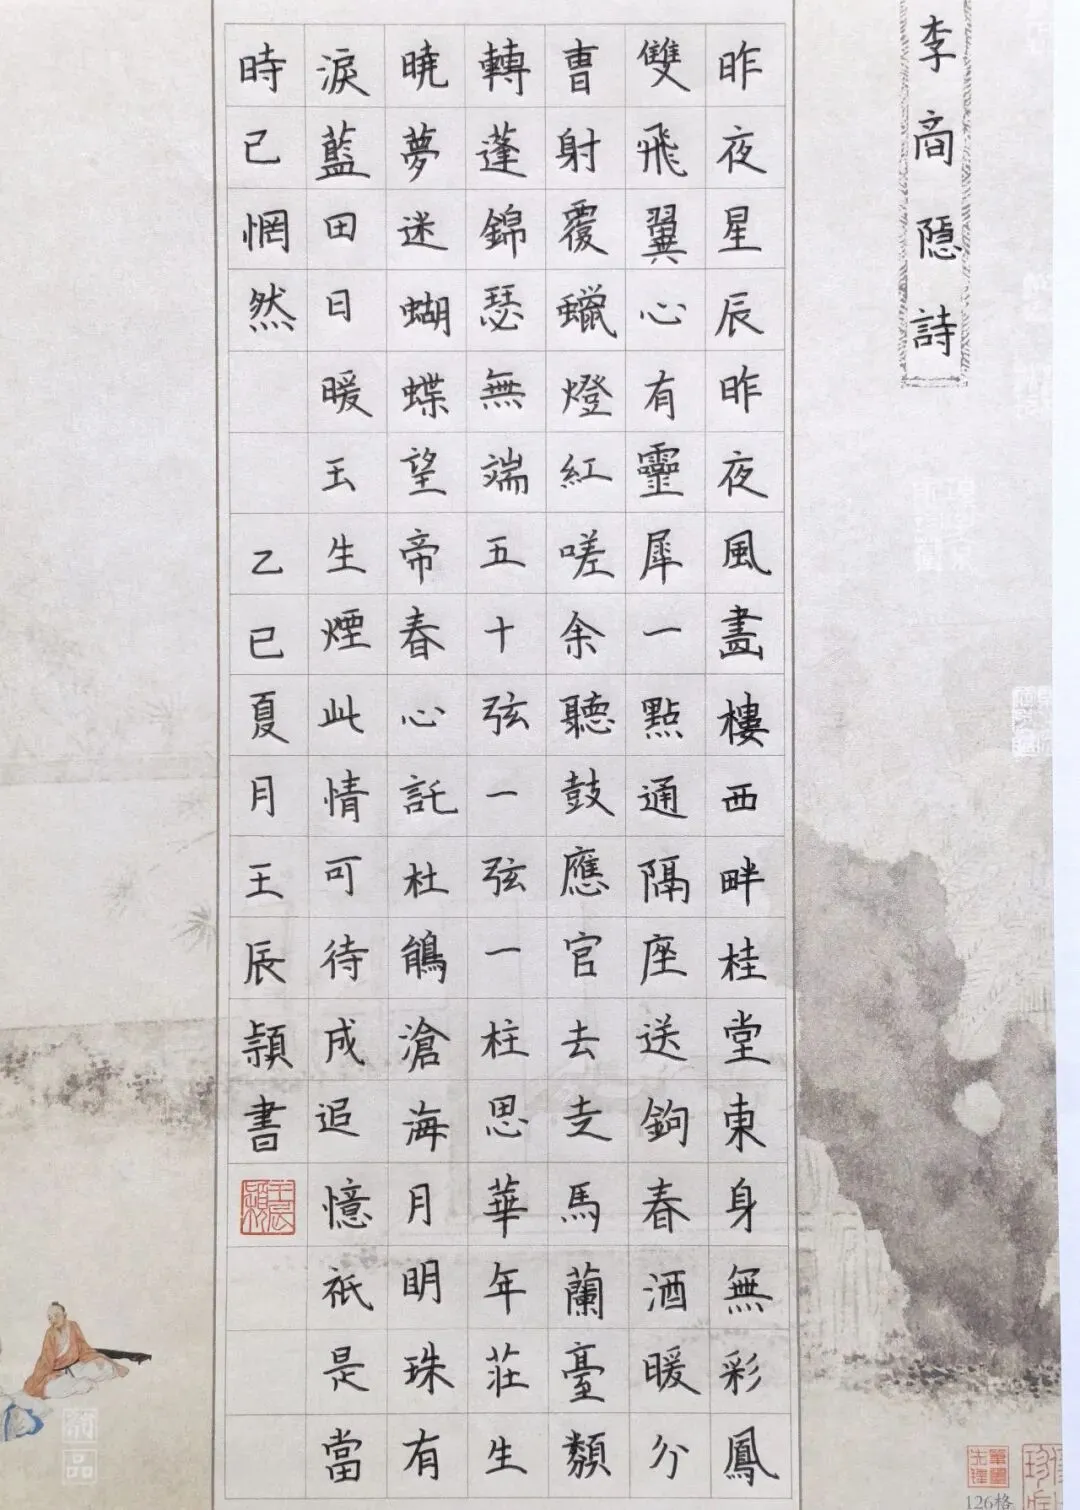 李商隱詩
昨夜星辰昨夜風畫樓西畔桂堂東身無彩鳳
雙飛翼心有靈犀一點通隔座送鉤春酒暖分
曹射覆蠟燈紅嗟余聽鼓應官去走馬蘭臺類
轉蓬錦瑟無端五十弦一弦一柱思華年莊生
曉夢迷蝴蝶望帝春心託杜鵑滄海月明珠有
淚藍田日暖玉生煙此情可待成追憶祇是當
時已惘然 乙巳夏月王辰頴書
王辰頴
126格